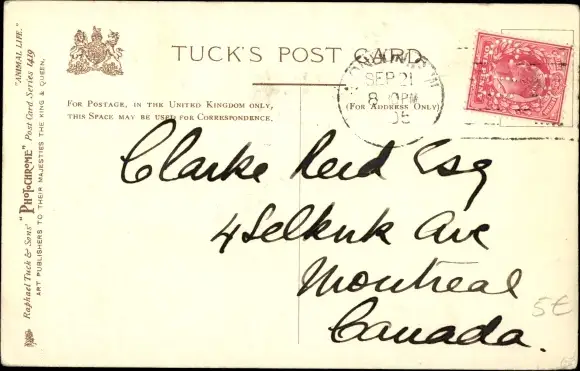 TUCK'S POST CARD
FOR POSTAGE, IN THE UNITED KINGDOM ONLY,
THIS SPACE MAY BE USED FOR CORRESPONDENCE.
(FOR ADDRESS ONLY)
SEP 21
8.0PM
05
Clarke Reid Esq
4 Selkirk Ave
Montreal
Canada.
5€
"ANIMAL LIFE."
Raphael Tuck & Sons' "PHOTOCHROME" Post Card Series 1419
ART PUBLISHERS TO THEIR MAJESTIES THE KING & QUEEN.